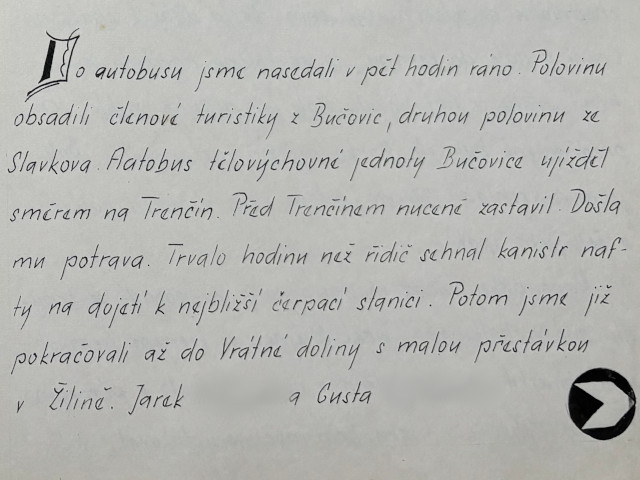 Do autobusu jsme nasedali v pět hodin ráno. Polovinu
obsadili členové turistiky z Bučovic, druhou polovinu ze
Slavkova. Aatobus tělovýchovné jednoty Bučovice ujížděl
směrem na Trenčín. Před Trenčínem nuceně zastavil. Došla
mu potrava. Trvalo hodinu než řidič sehnal kanistr naf-
ty na dojetí k nejbližší čerpací stanici. Potom jsme již
pokračovali až do Vrátné doliny s malou přestávkou
v Žilině. Jarek a Gusta